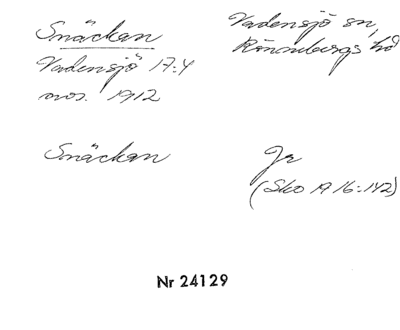 Snäckan
Vadensjö 17:4
mos. 1912
Vadensjö sn,
Rönnebergs hd
Snäckan
Jr
(Sko A 16:142)
Nr 24129